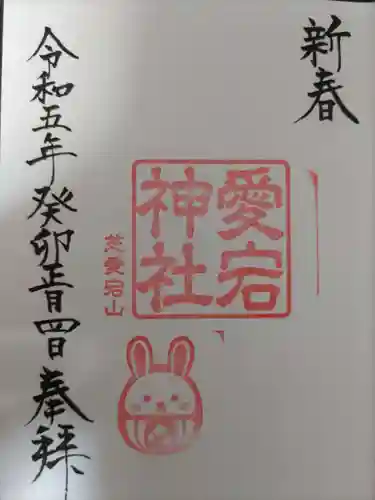 新春
愛宕
神社
芝愛宕山
令和五年癸卯正月四日奉拝